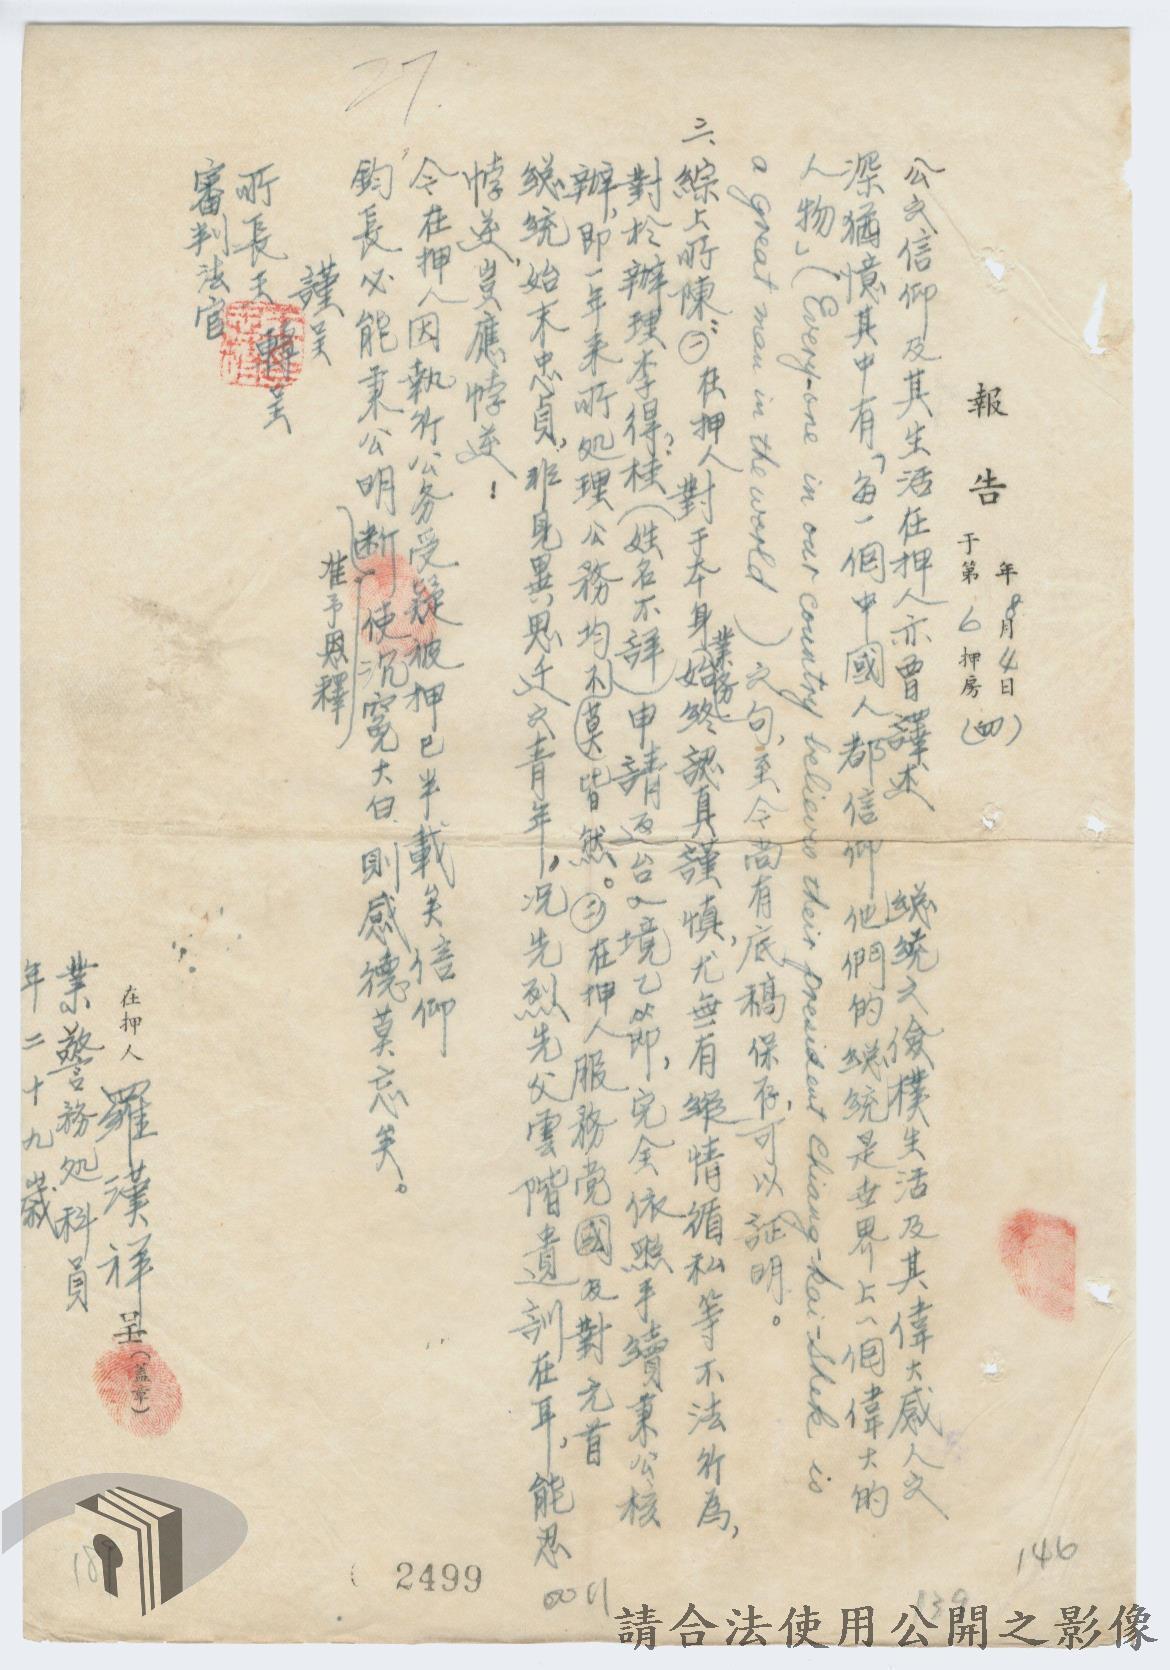 27.
報告
年8月4日
于第6押房(四)
公文信仰及其生活在押人亦曾譯述 總統之儉樸生活及其偉大感人文
深猶憶其中有「每一個中國人都信仰他們的總統是世界上一個偉大的
人物」(Every-one in our country believes their president Chiang-Kai-Shek is
a great man in the world )文句,至今尚有底稿保存,可以証明。
三、綜上所陳:㊀在押人對于本身業務始終認真謹慎,尤無有縱情循私等不法行為,
對於辦理李得桂?(姓名不詳)申請返台入境乙節,完全依照手續秉公核
辦,即一年來所処理公務均不莫皆然。㊁在押人服務党國及對元首
總統始末忠貞,非見異思迁之青年,况先烈先父雲階遺訓在耳,能忍
悖逆,豈應悖逆!
今在押人因執行公务受疑被押已半載矣信仰
鈞長必能秉公明断使沉寃大白則感德莫忘矣。
准予恩釋
謹呈
所長 轉呈
審判法官
在押人 羅漢祥 呈(蓋章)
業警務処科員
年二十九歲
146
139
2499
請合法使用公開之影像